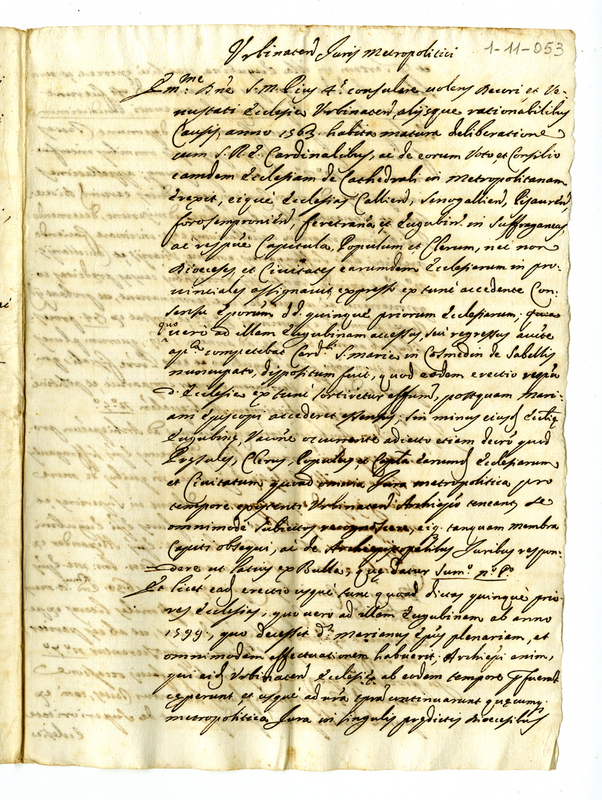 Urbinaten Juris Metropolitici
1-11-053
Em.me Dne S. M. Pius 4.s consulere volens Decori et Ve-
nustati Ecclesiæ Urbinaten, alijsque rationabilibus
Causis, anno 1563 habita matura deliberatione
cum S. R. E. Cardinalibus, ac de eorum Voto et Consilio
eamdem Ecclesiam de Cathedrali in Metropolitanam
erexit, eique Ecclesias Callien, Senogallien, Pisauren,
forosempronien, feretrana et Eugubin. in Suffraganeas,
ac respve Capitula, Populum et Clerum, nec non
Dioeceses, et Civitates earumdem Ecclesiarum in pro-
vinciales assignavit, expresso ex tunc accedente Con-
sensu Eporum dd. quinque priorum Ecclesiarum.
vero ad illam Eugubinam accessus, seu regressus
competebat Card. S. Mariæ in Cosmedin de Sabellis
nuncupato, dispositum fuit, quod eadem erectio respu
d. Ecclesiæ ex tunc sortiretur effum, postquam Mari-
ani Episcopi accederet sin minus eiusd Ecclie
Eugubine, Vacone occurrente adiecto etiam decto quod
Clerus, Populus, et Capla earumd Ecclesiarum
et Civitatum quoad omnia Jura metropolitica pro
tempore existenti Urbinaten Archiepo teneant se
omnimode subiectos recognoscere, eiq. tanquam membra
Capiti obsequi, ac de Archiepiscopalibus Juribus respon-
dere ut latius ex Bulla, quę datur Sum.o n.o p.o
Et licet ead erectio usque tunc quoad dictas quinque prio-
res Ecclesias, quo vero ad illam Eugubinam ab anno
1599, quo decessit d.s Marianus Epus plenariam, et
omnimodam effectuationem habuerit. Archiepi enim,
qui eid Urbinaten Ecclesię ab eodem tempore pfuerut
ceperunt, et usque ad nra tpra continuarunt quęcumq.
metropolitica Jura in singulis prędictis Dioecesibus